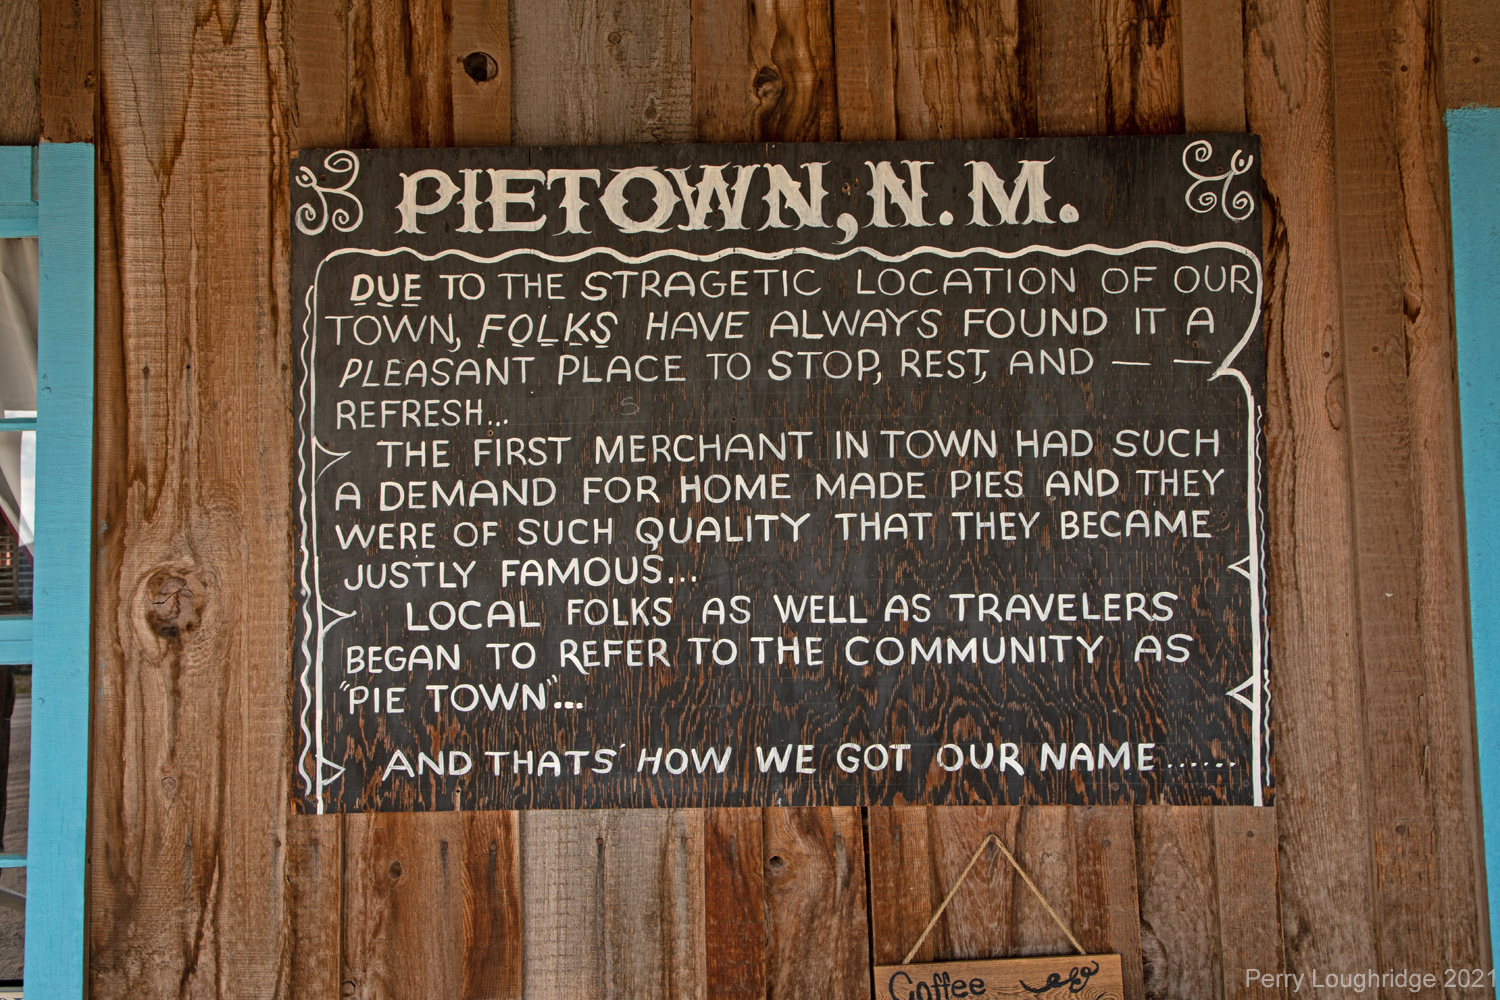 PIETOWN, N.M.
DUE TO THE STRAGETIC LOCATION OF OUR
TOWN, FOLKS HAVE ALWAYS FOUND IT A
PLEASANT PLACE TO STOP, REST, AND — —
REFRESH...
THE FIRST MERCHANT IN TOWN HAD SUCH
A DEMAND FOR HOME MADE PIES AND THEY
WERE OF SUCH QUALITY THAT THEY BECAME
JUSTLY FAMOUS...
LOCAL FOLKS AS WELL AS TRAVELERS
BEGAN TO REFER TO THE COMMUNITY AS
"PIE TOWN"...
AND THATS' HOW WE GOT OUR NAME......
Coffee
Perry Loughridge 2021